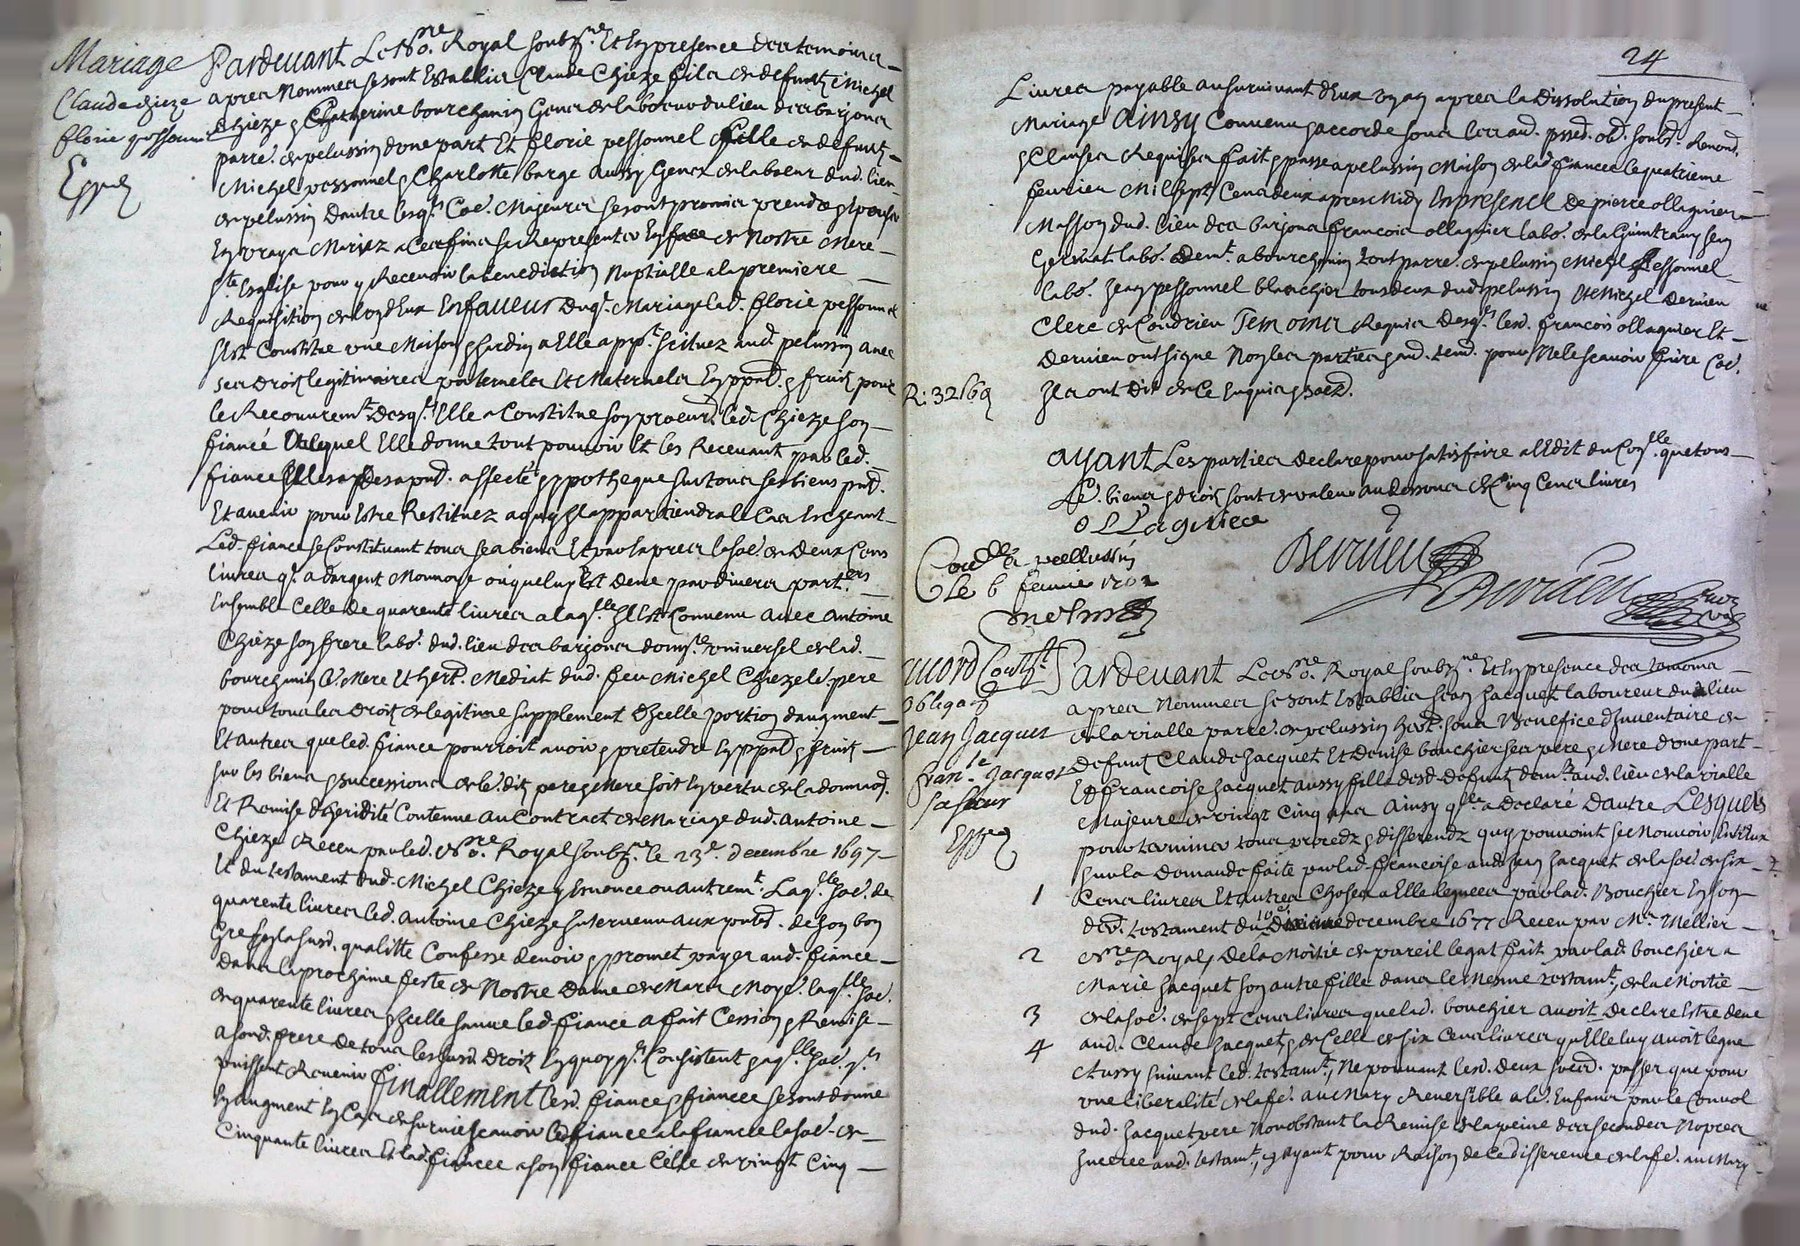 Mariage
Claude chieze
florie pessonnel
Expe
Pardevant Le no.re Royal soubz.ne Et En presence des temoins
apres Nommes se sont Establis Claude Chieze fils de deffunt Michel
Chieze & Catherine bourchanin Gens de labeur du lieu des barjons
parre. de pelussin d'une part Et florie pessonnel fille de defunt
Michel pessonnel & Charlotte barge aussy Gens de labeur dud. lieu
de pelussin d'autre lesq.ls Coe. Majeurs se sont promis prendre & Epouser
En vrays Mariez a Ces fins se Representer En face de Nostre Mere
S.te Esglise pour y Recevoir la benediction Nuptialle a la premiere
Requisition de l'un d'Eux En faveur duq.l Mariage lad. florie pessonnel
s'est Constitue une Maison & Jardin a Elle app.t scituez aud. pelussin avec
ses droits legitimaires paternels Et Maternels En ppal. & fruits pour
le Recouvrem.t desq.ls Elle a Constitue son procur. led. Chieze son
fiancé Auquel Elle donne tout pouvoir Et les Recevant par led.
fiance Il les a des a pnt. affecté & ypotheque sur tous ses biens pnt.
Et avenir pour Estre Restituez a qui Il appartiendra le Cas Escheant
Led. fiance se Constituant tous ses biens Et par Expres la soe. de deux Cens
livres q. a d'argent Monnoye ou que luy Est deue par divers part.ers
Ensemble Celle de quarente livres a laq.lle Il Est Convenu avec Antoine
Chieze son frere labo. dud. lieu des barjons don.re universel de lad.
bourchanin leur Mere Et hert. Mediat dud. feu Michel Chieze le. pere
pour tous les droits de legitime supplement d'Icelle portion d'augment
Et autres que led. fiance pourroit avoir & pretendre En ppal & fruits
sur les biens & successions de le. dit pere & Mere soit En vertu de la donnaon.
Et Remise d'heridité Contenue au Contract de Mariage dud. Antoine
Chieze Receu par led. No.re Royal soubz.ne le 23e. decembre 1697
Et du testament dud. Michel Chieze y Enoncé ou autrem.t Laq.lle soe. de
quarente livres led. Antoine Chieze Intervenu aux pntes. de son bon
Gré En la susd. qualitte Confesse devoir & promet payer aud. fiance
dans la prochaine feste de Nostre Dame de Mars Moye. laq.lle soe.
de quarente livres & Icelle sauve led. fiance a fait Cession & Remise
a sond. frere de tous les susd. droits En quoy q.ls Consistent & a q.lle soe. q.ls
puissent Revenir finallement lesd. fiance & fiancee se sont donne
En augment En Cas de survie scavoir led. fiance a la fiancee la soe. de
Cinquante livres Et lad. fiancee a son fiance Celle de vingt Cinq
24
Livres payable au survivant d'Eux un an apres la dissolution du present
Mariage Ainsy Convenu & accorde sous les aud. pmes. obl. soubz. Renond.
& Clauses Requises fait & passe a pelussin Maison de lad. fiancee le quatrieme
fevrier Mil sept Cens deux apres Midy En presence de pierre ollagnier
Masson dud. lieu des barjons francois ollagnier labo. de la Guintrany Jean
Gerinat labo. dem.t a bourchanin tout parre. de pelussin Michel Pessonnel
labo. Jean pessonnel blanchier tous deux dud. pelussin Et Michel Dervieu
Clerc de Condrieu Temoins Requis desq.ls lesd. francois ollagnier Et
Dervieu ont signe Non les parties & aud. tem. pour Ne le scavoir faire Coe.
Ils ont dit de Ce Enquis & soez.
R: 32 s 6 d
ayant Les parties declare pour satisfaire a l'Edit du Con.lle que tous
Le. biens & droits sont de valeur au dessous de Cinq Cens livres
OLLagniere
Dervieu
Dervieu
Con.lle a pellussin
Le 6 fevrier 1702
accord Cont.t
Obligaon
Jean Jacquet
fran.se Jacquet
sa sœur
Expe
Pardevant Le no.re Royal soubz.ne Et En presence des temoins
apres Nommes se sont Establis Jean Jacquet laboureur du lieu
de la vialle parre. de pelussin hert. sous Benefice d'Inventaire de
defunts Claude Jacquet Et Denise bouchier ses pere & Mere d'une part
Et francoise Jacquet aussy fille desd. defunts dem.t aud. lieu de la vialle
Majeure de vingt Cinq ans Ainsy q.lle a declaré d'autre Lesquels
pour terminer tous procedz & differendz quy pouvoint se Mouvoir Entr'Eux
sur la demande faite par lad. francoise aud. Jean Jacquet de la soe. de six
1 Cens livres Et autres Choses a Elle leguees par lad. Bouchier En son
der. testament du 10e decembre 1677 Receu par Me. Mellier
2 No.re Royal, De la Moitié de pareil legat fait par lad. bouchier a
Marie Jacquet son autre fille dans le Mesme testam.t, de la Moitié
3 de la soe. de sept Cens livres que lad. bouchier avoit declaré Estre deue
4 aud. Claude Jacquet, & de Celle de six Cens livres qu'Elle luy avoit legué
Aussy suivant led. testam.t, Ne pouvant lesd. deux soes. passer que pour
une liberalité de lafe. au Mary Reversible a le. Enfans par le Convol
dud. Jacquet pere Nonobstant la Remise de la peine des secondes Nopces
Inseree aud. testam.t, & Ayant pour Raison de Ce difference de lafe. au Mary